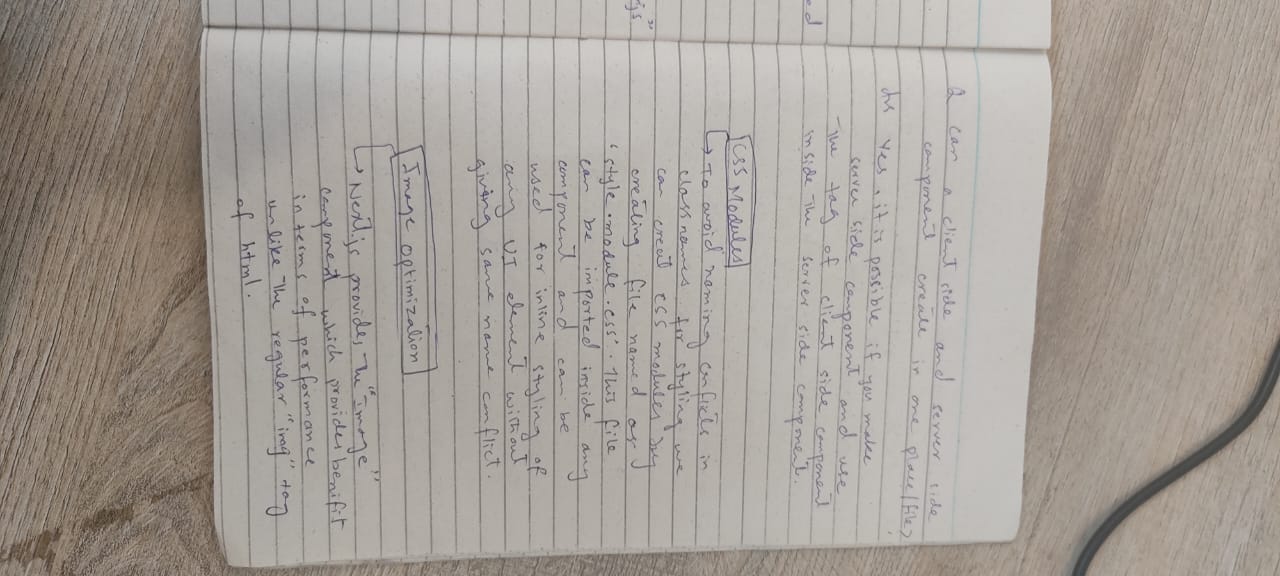 ed
js"
Q can a client side and server side
component create in one place/file?
Ans Yes, it is possible if you make
server side component and use
the tag of client side component
inside the server side component.
CSS Modules
↳ To avoid naming conficts in
class names for styling we
can creat css modules by
creating file named as
'style.module.css'. This file
can be imported inside any
component and can be
used for inline styling of
any UI element without
giving same name conflict.
Image Optimization
↳ Nextjs provides the "image"
component which provides benifit
in terms of performance
unlike the regular "img" tag
of html.